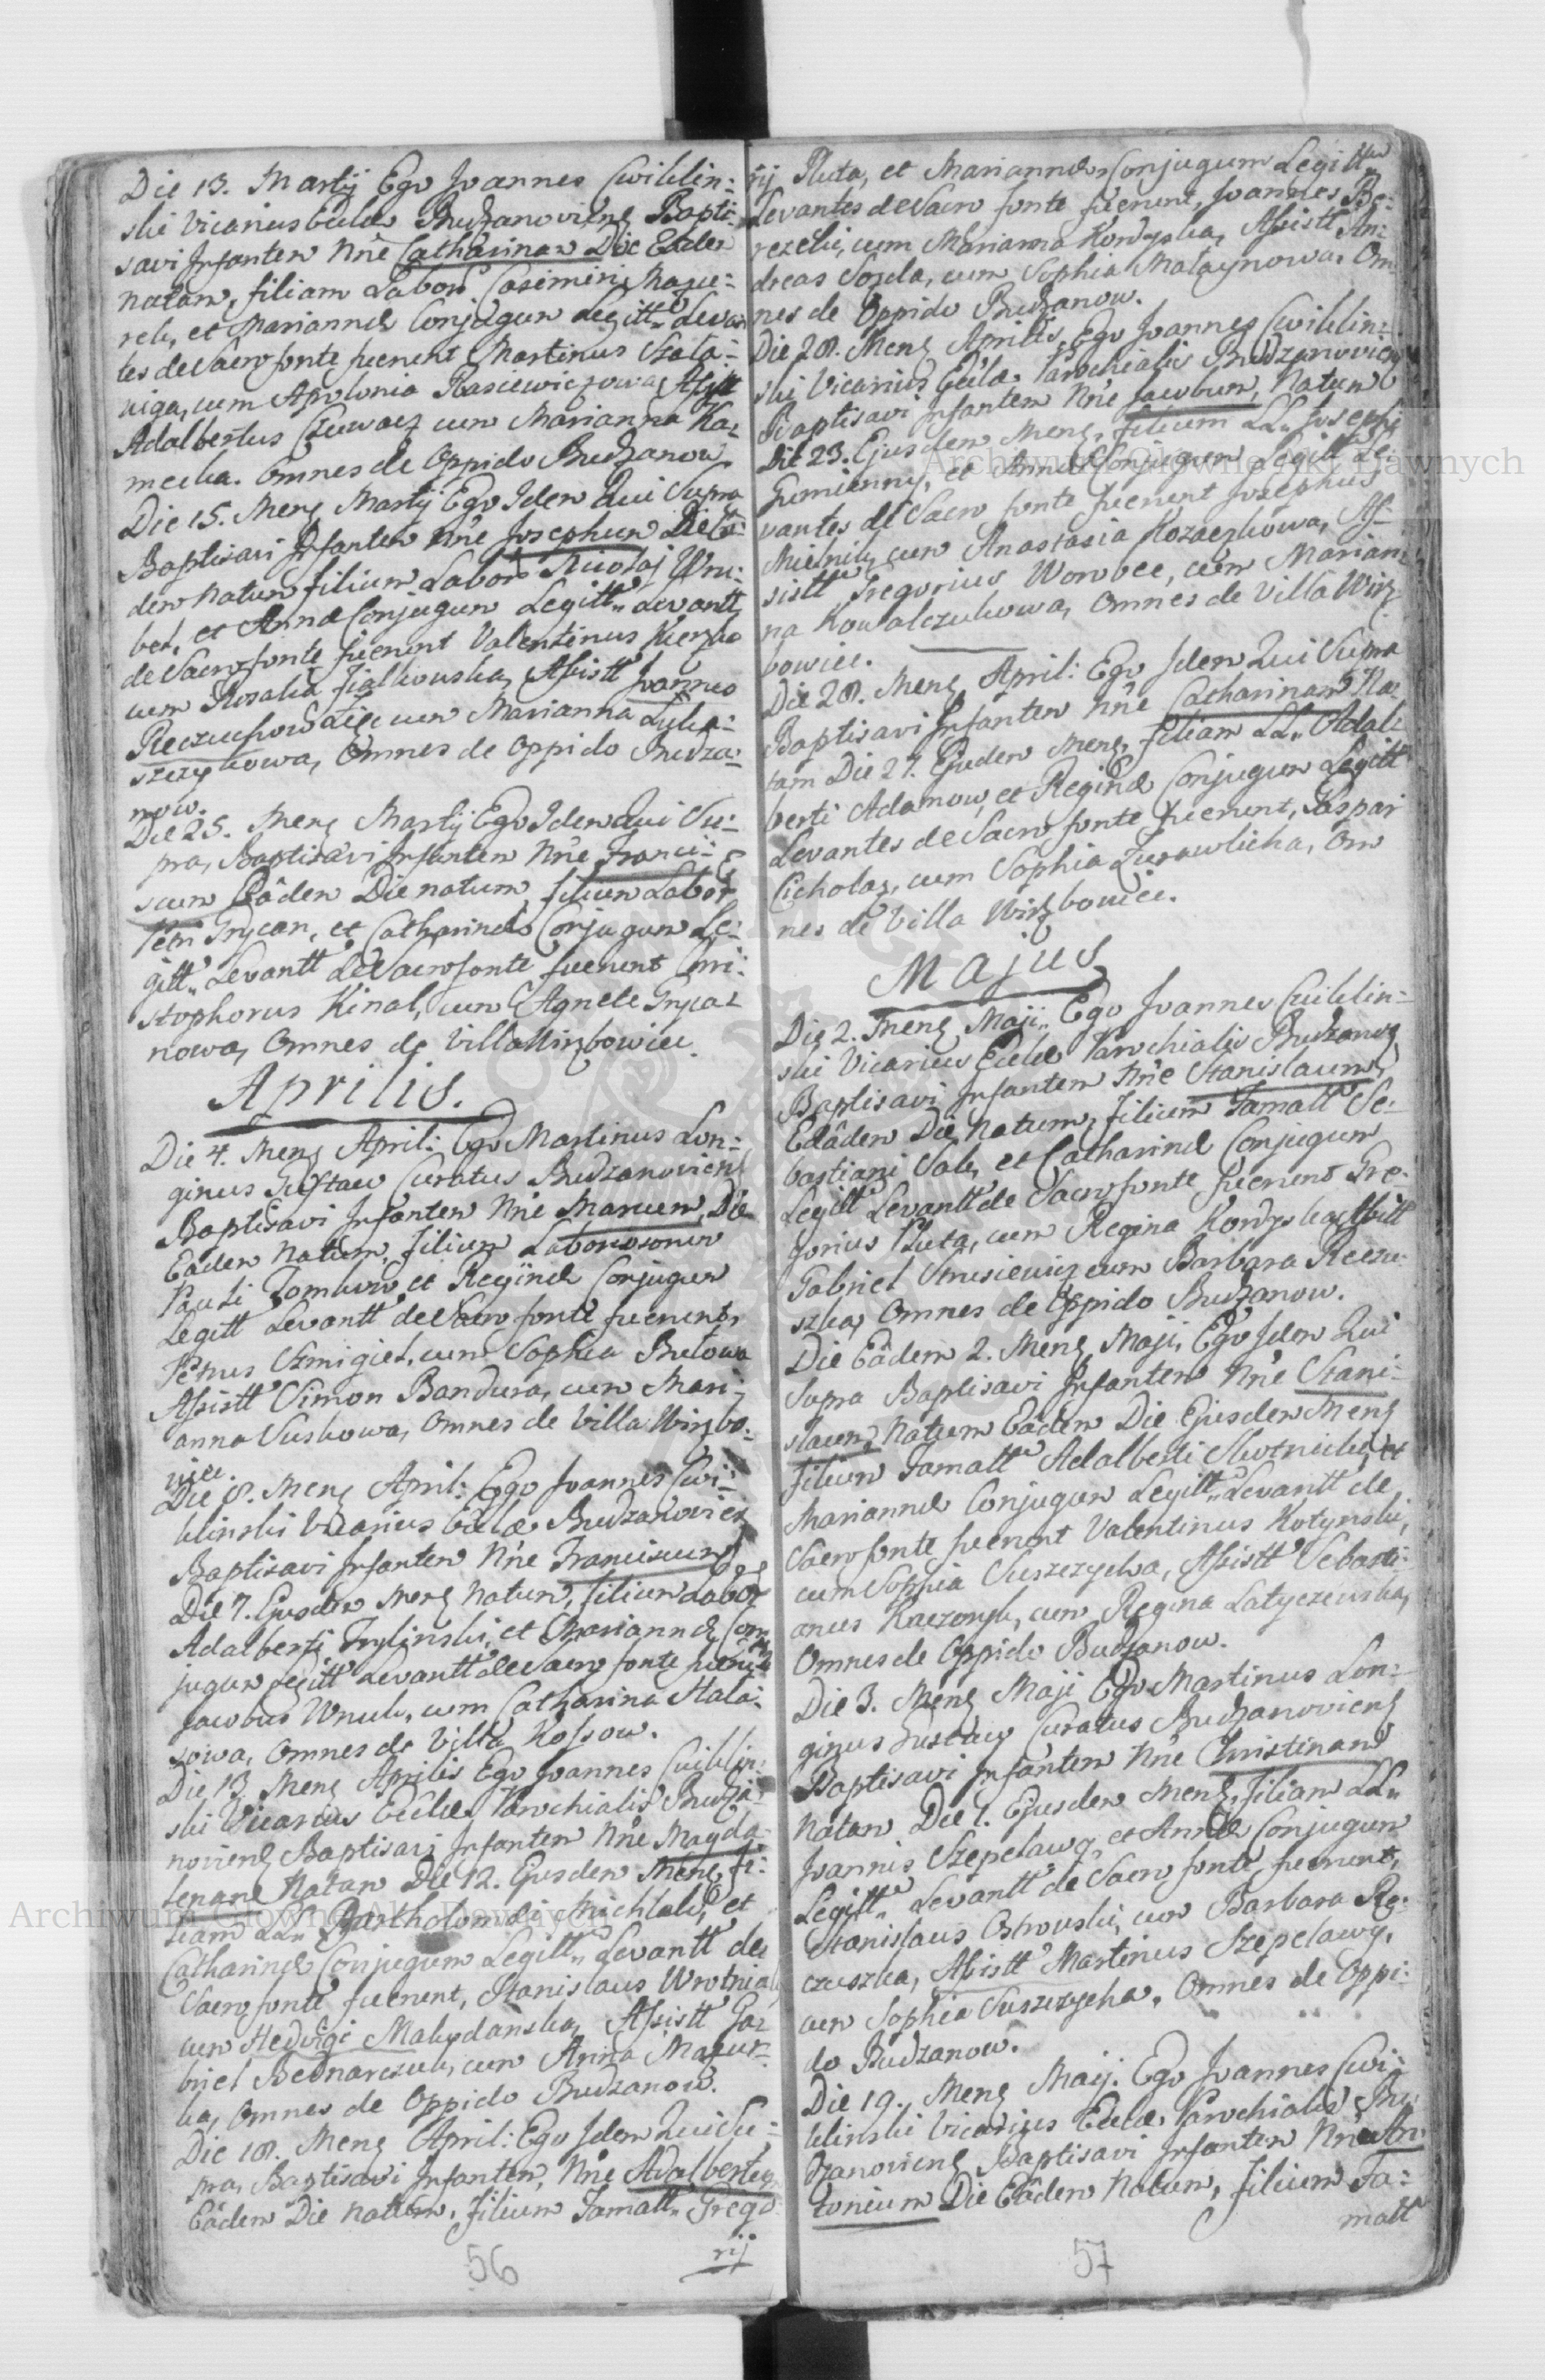 Die 13. Martij Ego Joannes Cwiklin-
ski Vicarius Ecclae Budzanoviens Bapti-
savi Infantem Nne Catharinam Die Eadem
natam, filiam Labor Casimiri
et Mariannae Conjugum Legitt. Levan
tes de Sacro fonte fuerunt Martinus
cum Apolonia Assistt
Adalbertus cum Marianna Ka-
mecka. Omnes de Oppido Budzanow
Die 15. Mens Martij Ego Idem Qui Supra
Baptisavi Infantem Nne Josephum Die Ea-
dem natum filium Labor Nicolaj Wru-
bel, et Annae Conjugum Legitt. Levantt
de Sacro fonte fuerunt Valentinus
cum Rosalia Assistt Joannes
cum Marianna Luka-
szczykowa, Omnes de Oppido Budza-
now.
Die 25. Mens Martij Ego Idem Qui Su-
pra, Baptisavi Infantem Nne Franci-
scum Eadem Die natum, filium Labor
Petri Grycan, et Catharinae Conjugum Le-
gitt. Levantt de Sacro fonte fuerunt Chri-
stophorus Kinal, cum Agnete Gryca-
nowa, Omnes de Villa Wirzbowiec.
Aprilis.
Die 4. Mens April: Ego Martinus Lon-
ginus Gustaw Curatus Budzanoviens
Baptisavi Infantem Nne Marcum, Die
Eadem natum, filium Laboriosorum
Pauli Tomkow, et Reginae Conjugum
Legitt Levantt de Sacro fonte fuerunt,
Petrus Szmigiel, cum Sophia
Assistt Simon Bandura, cum Mari-
anna Suskowa, Omnes de Villa Wirzbo-
wiec.
Die 8. Mens April: Ego Joannes Cwi-
klinski Vicarius Ecclae Budzanovien
Baptisavi Infantem Nne Franciscum
Die 7. Ejusdem Mens natum, filium Labor
Adalberti Trylinski, et Mariannae Con
jugum Legitt Levantt de Sacro fonte fuerunt
Jacobus Wnuk, cum Catharina
Omnes de Villa Kossow.
Die 13. Mens Aprilis Ego Joannes Cwiklin-
ski Vicarius Ecclae Parochialis Budza-
noviens Baptisavi Infantem Nne Magda-
lenam Natam Die 12. Ejusdem Mens, fi-
liam LL. Bartholomaei Michlak, et
Catharinae Conjugum Legitt. Levantt de
Sacro fonte fuerunt, Stanislaus Wrotniak
cum Hedvigi Makydanska, Assistt Ga-
briel Bednarczuk, cum Anna Mazur-
ka, Omnes de Oppido Budzanow.
Die 18. Mens April: Ego Idem Qui Su-
pra, Baptisavi Infantem, Nne Adalbertum
Eadem Die natum, filium Famatt. Grego
rij
56
rij Pluta, et Mariannae Conjugum Legitt
Levantes de Sacro fonte fuerunt, Joannes
cum Marianna Kordyska, Assistt An-
dreas cum Sophia Om
nes de Oppido Budzanow.
Die 28. Mens Aprilis, Ego Joannes Cwiklin-
ski Vicarius Ecclae Parochialis Budzanovien
Baptisavi Infantem Nne Jacobum, Natum
Die 23. Ejusdem Mens, filium LL. Josephi
Humienny, et Annae Conjugum Legitt Le-
vantes de Sacro fonte fuerunt Josephus
cum Anastasia Kozaczkowa, As-
sistt Gregorius cum Marian-
na Kowalczukowa, Omnes de Villa Wirz
bowiec.
Die 28. Mens April: Ego Idem Qui Supra
Baptisavi Infantem Nne Catharinam Na-
tam Die 27. Ejusdem Mens, filiam LL. Adal-
berti Adamow, et Reginae Conjugum Legitt
Levantes de Sacro fonte fuerunt, Gaspar
Cicholaz, cum Sophia Zurawlicha, Om
nes de Villa Wirzbowiec.
Majus
Die 2. Mens Maji. Ego Joannes Cwiklin-
ski Vicarius Ecclae Parochialis Budzanov
Baptisavi Infantem Nne Stanislaum,
Eadem Die Natum, filium Famatt Se-
bastiani et Catharinae Conjugum
Legitt Levantt de Sacro fonte fuerunt Gre-
gorius Pluta, cum Regina Kordyska, Assistt
Gabriel Strusiewicz cum Barbara
Omnes de Oppido Budzanow.
Die Eadem 2. Mens Maji, Ego Idem Qui
Supra Baptisavi Infantem Nne Stani-
slaum, Natum Eadem Die Ejusdem Mens
filium Famatt Adalberti et
Mariannae Conjugum Legitt. Levantt de
Sacro fonte fuerunt Valentinus Kotynski,
cum Sophia Suszczycka, Assistt Sebasti-
anus cum Regina Latyczewska,
Omnes de Oppido Budzanow.
Die 3. Mens Maji Ego Martinus Lon-
ginus Gustaw Curatus Budzanoviens
Baptisavi Infantem Nne Christinam
Natam Die 1. Ejusdem Mens, filiam LL.
Joannis Szepelawy, et Annae Conjugum
Legitt. Levantt de Sacro fonte fuerunt,
Stanislaus Ostrowski, cum Barbara Re-
czuszka, Assistt Martinus Szepelawy,
cum Sophia Suszczycka, Omnes de Oppi-
do Budzanow.
Die 19. Mens Maij. Ego Joannes Cwi-
klinski Vicarius Ecclae Parochialis Bu-
dzanoviens Baptisavi Infantem Nne An-
tonium Die Eadem Natum, filium Fa-
matt
57
Archiwum Główne Akt Dawnych
Archiwum Główne Akt Dawnych